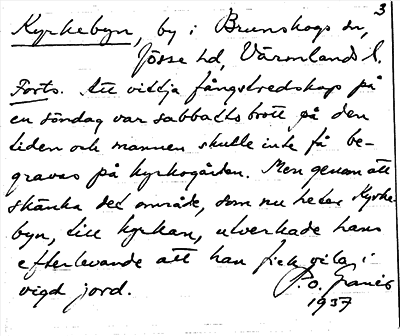 3
Kyrkebyn, by i Brunskogs sn,
Jösse hd, Värmlands l.
Forts. Att vittja fångstredskap på
en söndag var sabbatsbrott på den
tiden och mannen skulle inte få be-
gravas på kyrkogården. Men genom att
skänka det område, som nu heter Kyrke
byn, till kyrkan, utverkade hans
efterlevande att han fick vila i
vigd jord.
P.O.
1937